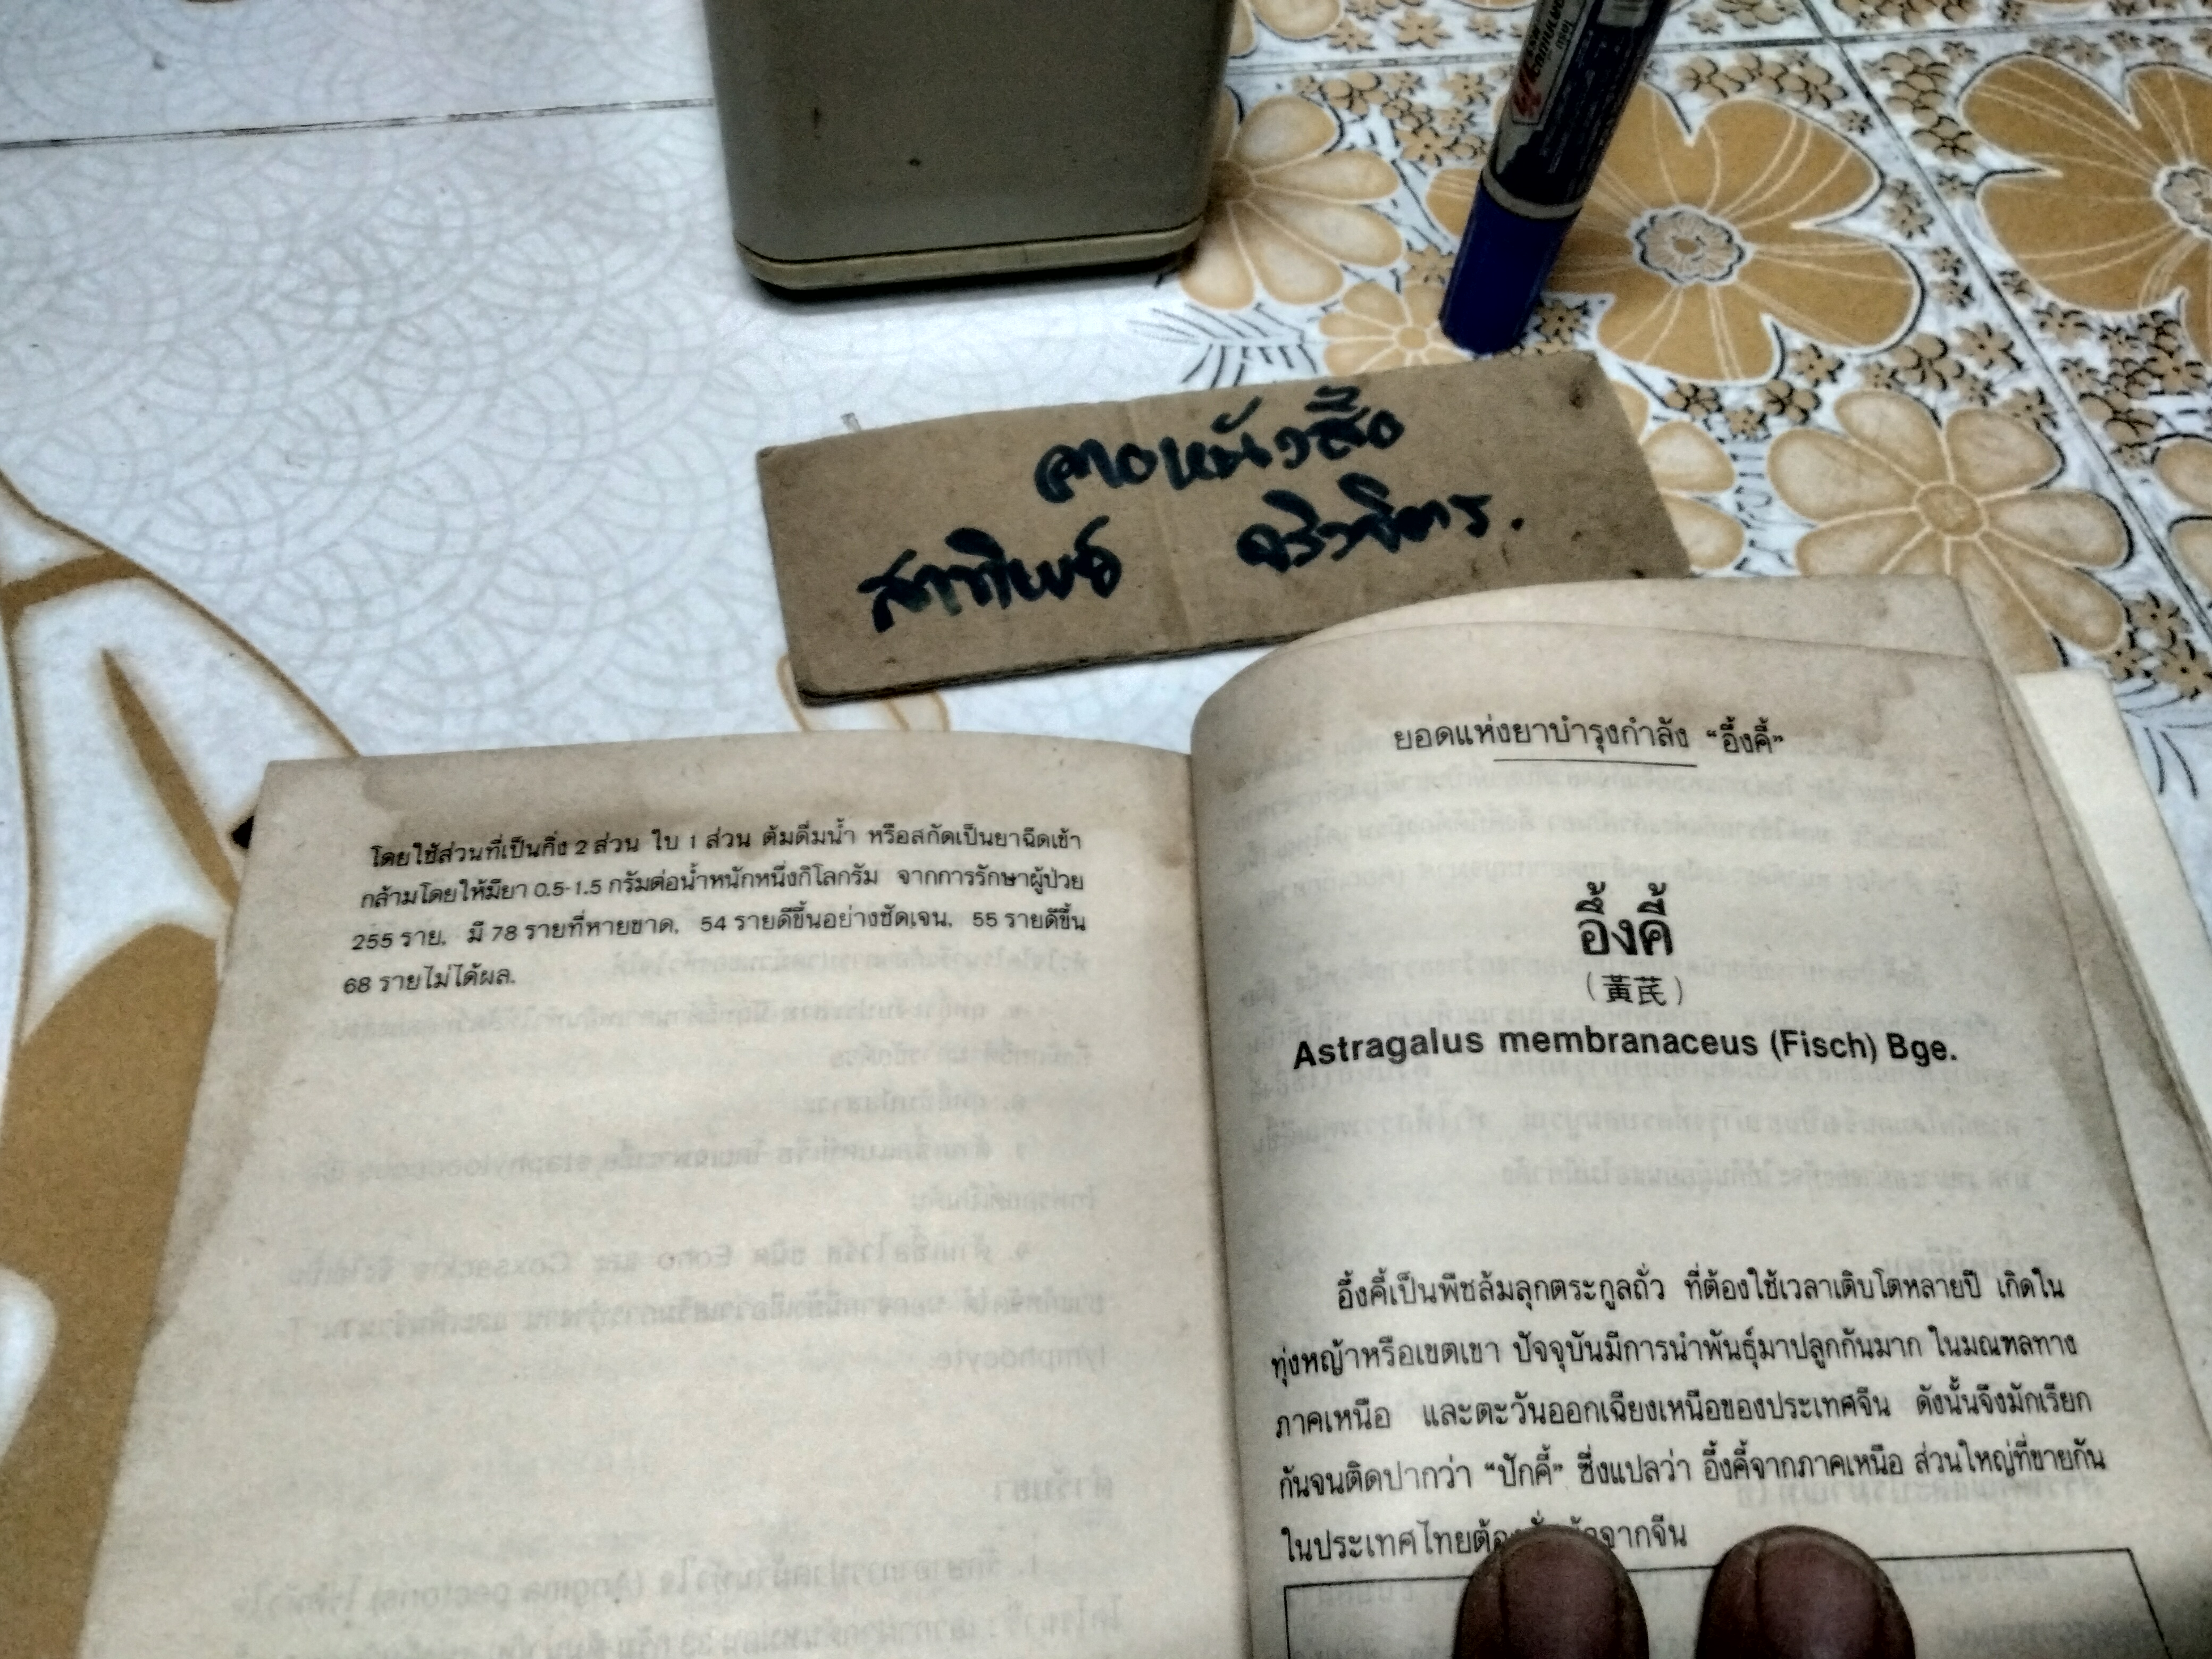 ขายหนังสือ
โดยใช้ส่วนที่เป็นกิ่ง 2 ส่วน ใบ 1 ส่วน ต้มดื่มน้ำ หรือสกัดเป็นยาฉีดเข้า
กล้ามโดยให้มียา 0.5-1.5 กรัมต่อน้ำหนักหนึ่งกิโลกรัม จากการรักษาผู้ป่วย
255 ราย, มี 78 รายที่หายขาด, 54 รายดีขึ้นอย่างชัดเจน, 55 รายดีขึ้น
68 รายไม่ได้ผล.
ยอดแห่งยาบำรุงกำลัง “อึ้งคี้”
อึ้งคี้
(黃芪)
Astragalus membranaceus (Fisch) Bge.
อึ้งคี้เป็นพืชล้มลุกตระกูลถั่ว ที่ต้องใช้เวลาเติบโตหลายปี เกิดใน
ทุ่งหญ้าหรือเขตเขา ปัจจุบันมีการนำพันธุ์มาปลูกกันมาก ในมณฑลทาง
ภาคเหนือ และตะวันออกเฉียงเหนือของประเทศจีน ดังนั้นจึงมักเรียก
กันจนติดปากว่า “ปักคี้” ซึ่งแปลว่า อึ้งคี้จากภาคเหนือ ส่วนใหญ่ที่ขายกัน
ในประเทศไทยต้อง จากจีน